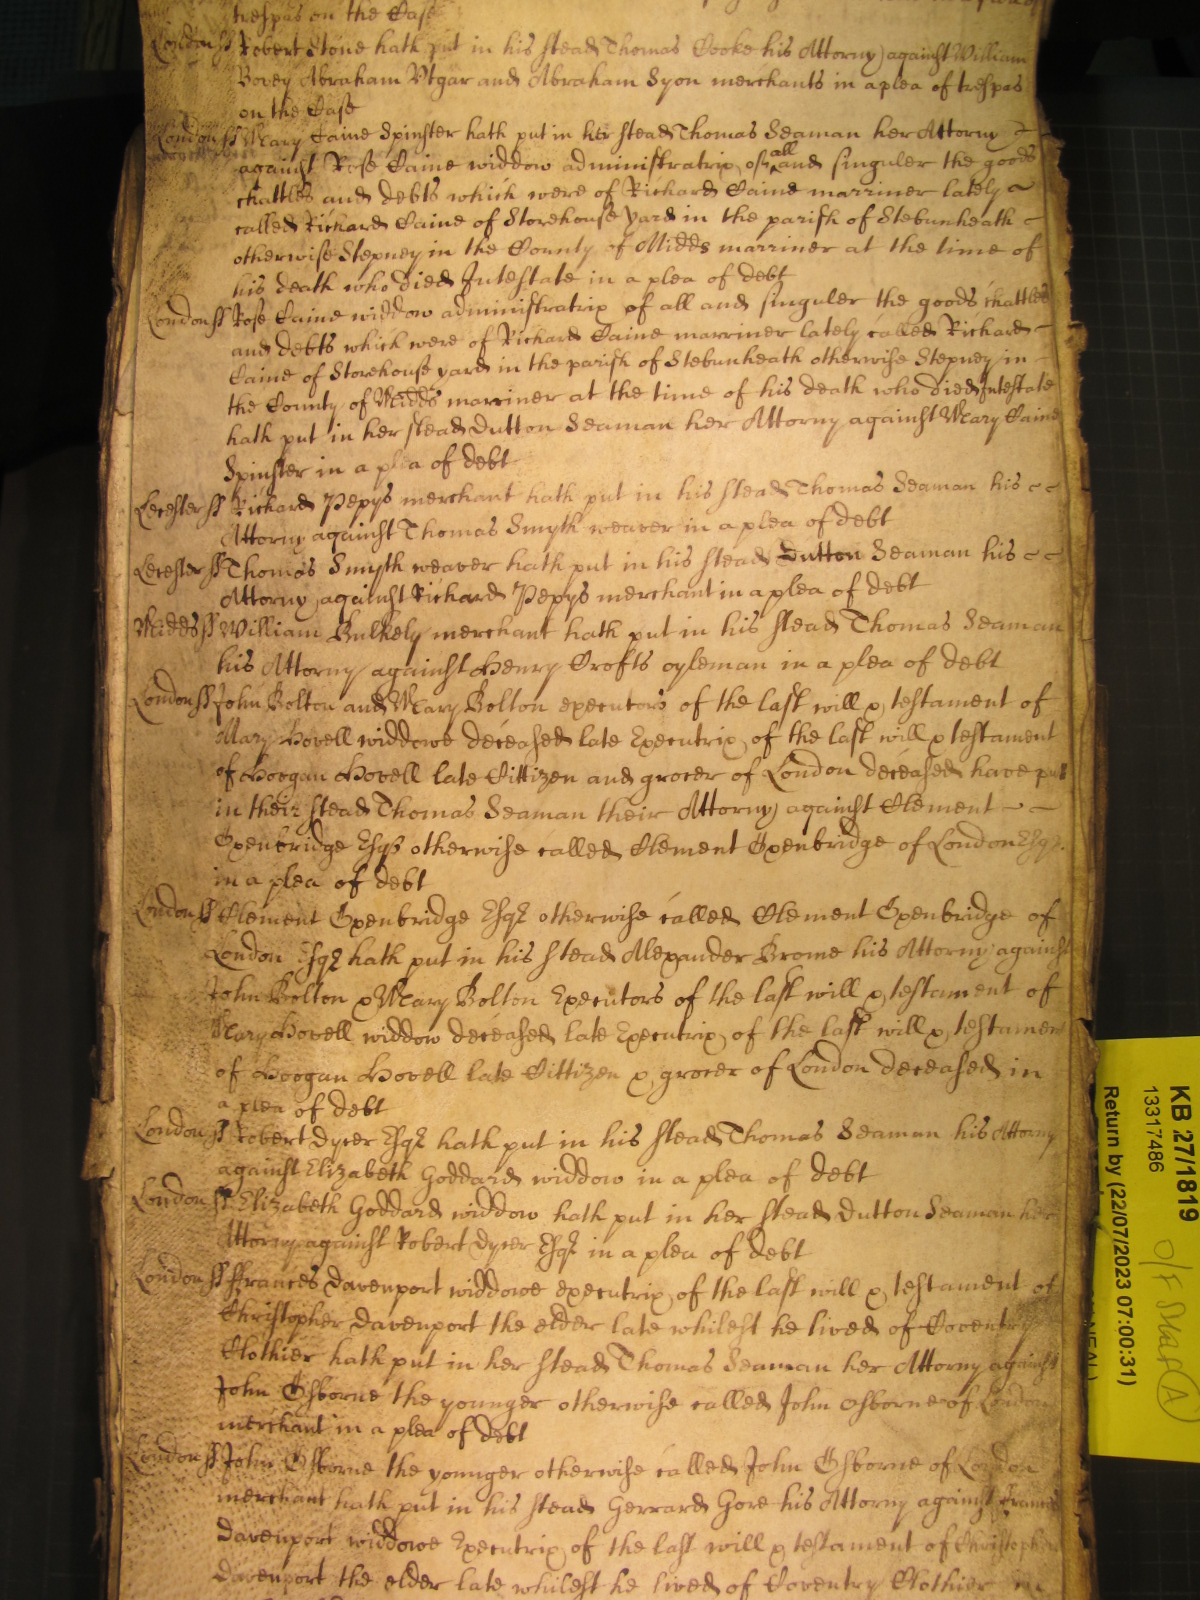 trespas on the Case
London ss Robert Stone hath put in his stead Thomas Cooke his Attorny against William
Bovey Abraham Vtgar and Abraham Syon merchants in a plea of trespas
on the Case
London ss Mary Caine Spinster hath put in her stead Thomas Seaman her Attorny
against Rose Caine widdow administratrix of all and singuler the goods
chattles and debts which were of Richard Caine marriner lately
called Richard Caine of Storehouse yard in the parish of Stebunheath
otherwise Stepney in the County of Midds marriner at the time of
his death who died Intestate in a plea of debt
London ss Rose Caine widdow administratrix of all and singuler the goods chattles
and debts which were of Richard Caine marriner lately called Richard
Caine of Storehouse yard in the parish of Stebunheath otherwise Stepney in
the County of Midds marriner at the time of his death who died Intestate
hath put in her stead Dutton Seaman her Attorny against Mary Caine
Spinster in a plea of debt
Lecester ss Richard Pepys merchant hath put in his stead Thomas Seaman his
Attorny against Thomas Smyth weaver in a plea of debt
Lecester ss Thomas Smyth weaver hath put in his stead Dutton Seaman his
Attorny against Richard Pepys merchant in a plea of debt
Midds ss William Bulkely merchant hath put in his stead Thomas Seaman
his Attorny against Henry Crofts oyleman in a plea of debt
London ss John Bolton and Mary Bolton executors of the last will & testament of
Mary Hovell widdowe deceased late Executrix of the last will & testament
of Hoogan Hovell late Cittizen and grocer of London deceased have put
in their stead Thomas Seaman their Attorny against Clement
Oxenbridge Esqr otherwise called Clement Oxenbridge of London Esqr
in a plea of debt
London ss Clement Oxenbridge Esqr otherwise called Clement Oxenbridge of
London Esqr hath put in his stead Alexander Brome his Attorny against
John Bolton & Mary Bolton Executors of the last will & testament of
Mary Hovell widdow deceased late Executrix of the last will & testament
of Hoogan Hovell late Cittizen & grocer of London deceased in
a plea of debt
London ss Robert Dycer Esqr hath put in his stead Thomas Seaman his Attorny
against Elizabeth Goddard widdow in a plea of debt
London ss Elizabeth Goddard widdow hath put in her stead Dutton Seaman her
Attorny against Robert Dycer Esqr in a plea of debt
London ss Frances Davenport widdowe executrix of the last will & testament of
Christopher Davenport the elder late whilest he lived of Coventry
Clothier hath put in her stead Thomas Seaman her Attorny against
John Osborne the younger otherwise called John Osborne of London
merchant in a plea of debt
London ss John Osborne the younger otherwise called John Osborne of London
merchant hath put in his stead Gerrard Gore his Attorny against Frances
Davenport widdowe Executrix of the last will & testament of Christopher
Davenport the elder late whilest he lived of Coventry Clothier in
KB 27/1819
13317486
Return by (22/07/2023 07:00:31)